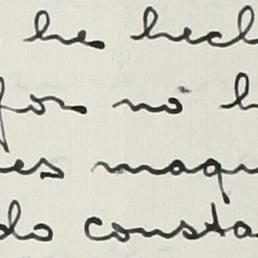 he hech
por no h
es maqu
do consta